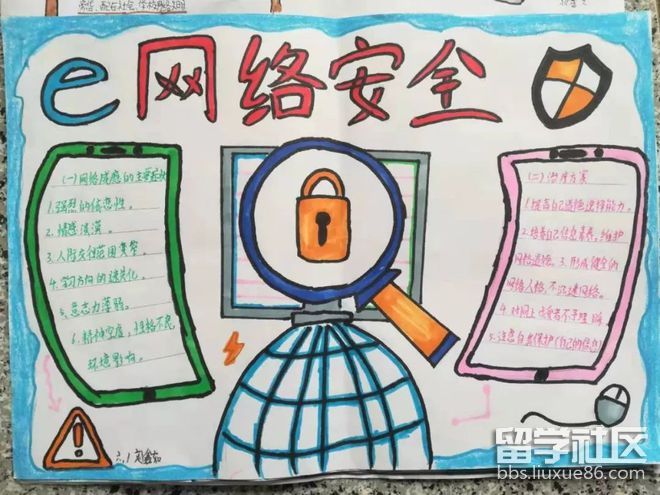 e网络安全
(一)网络成瘾的主要症状
1.强烈的依恋性。
2.情感淡漠。
3.人际交往范围
4.学习方向的迷失化。
5.意志力薄弱。
6.精神空虚,性格不
环境影响。
(二)治疗方案
1.提高自己选择能力。
2.培养自己信息素养,维护
网络道德。3.形成健全的
网络人格,不沉迷网络。
4.对网上
5.注意自我保护(自己的信息)
六.1
留学社区
bbs.liuxue86.com